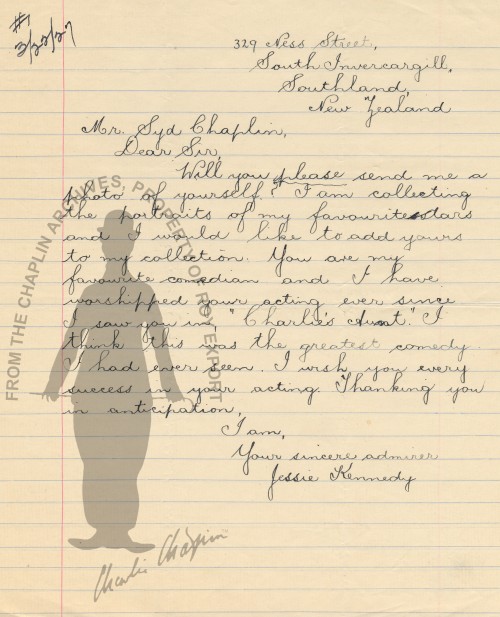 #1
3/22/27
329 Ness Street,
South Invercargill,
Southland,
New Zealand
Mr. Syd Chaplin,
Dear Sir,
Will you please send me a
photo of yourself? I am collecting
the portraits of my favourite stars
and I would like to add yours
to my collection. You are my
favourite comedian and I have
worshipped your acting ever since
I saw you in, "Charlie's Aunt." I
think this was the greatest comedy
I had ever seen. I wish you every
success in your acting. Thanking you
in anticipation,
I am,
Your sincere admirer
Jessie Kennedy
FROM THE CHAPLIN ARCHIVES, PROPERTY OF ROY EXPORT
Charlie Chaplin